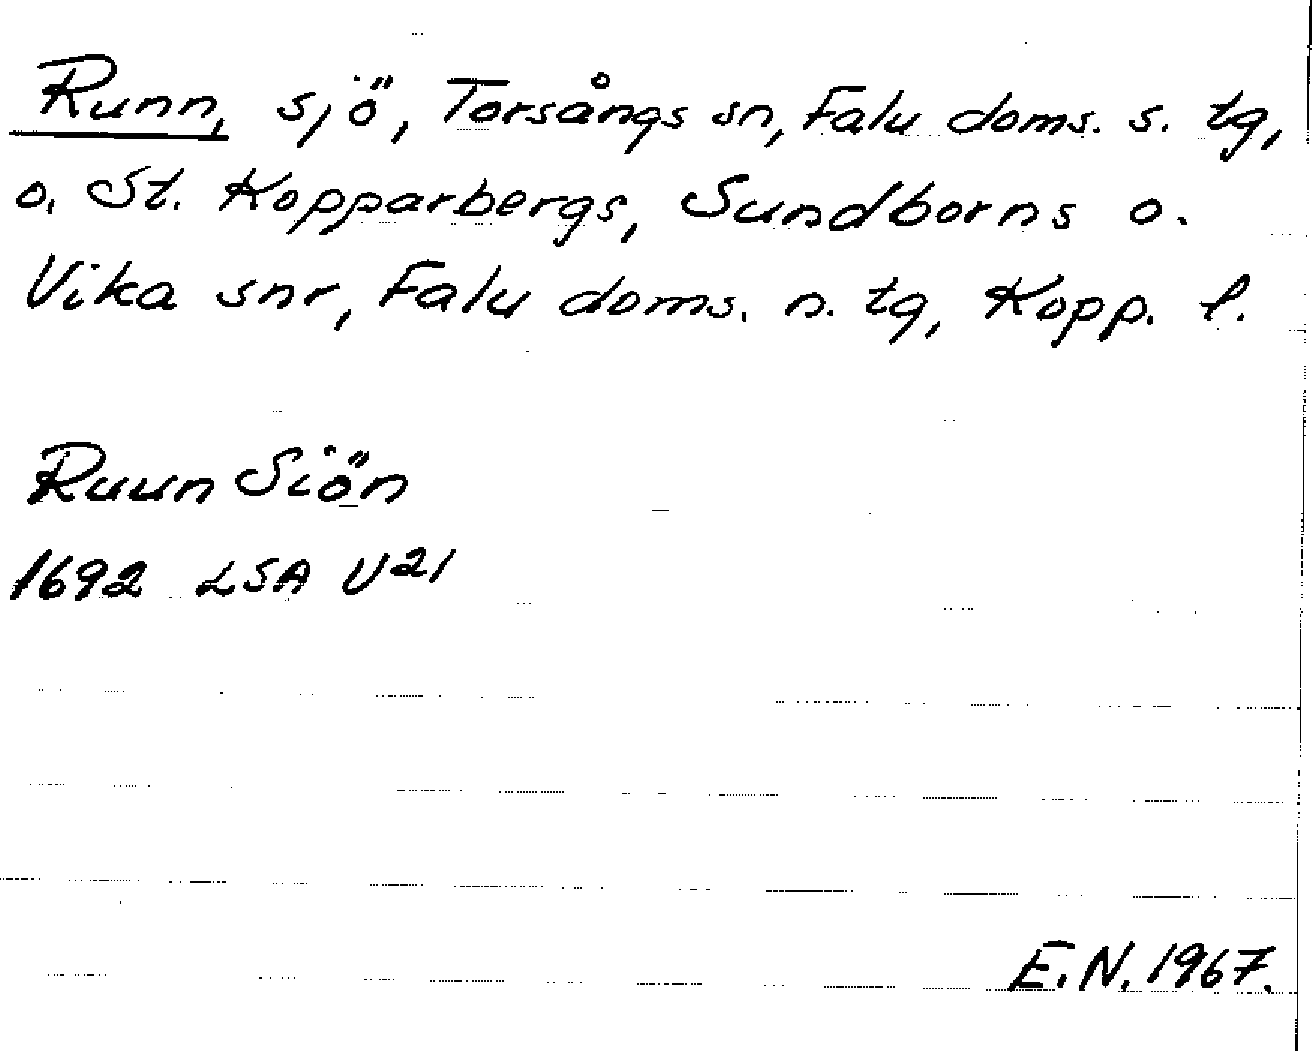 Runn, sjö, Torsångs sn, Falu doms. s. tg,
o. St. Kopparbergs, Sundborns o.
Vika snr, Falu doms. n. tg, Kopp. l.
Ruun Siön
1692 LSA U21
E.N. 1967.